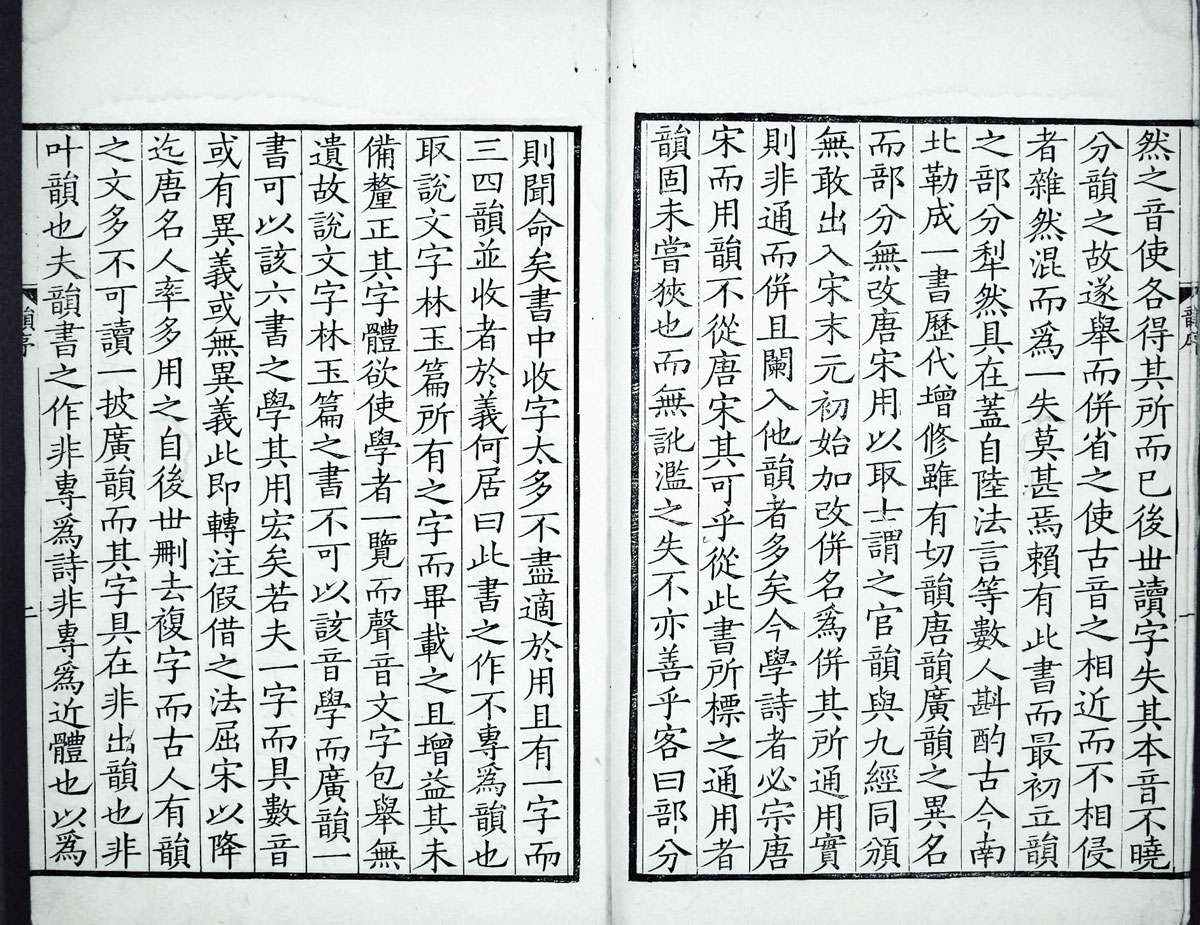 然之音使各得其所而已後世讀字失其本音不曉
分韻之故遂舉而併省之使古音之相近而不相侵
者雜然混而爲一失莫甚焉賴有此書而最初立韻
之部分犁然具在蓋自陸法言等數人斟酌古今南
北勒成一書歷代增修雖有切韻唐韻廣韻之異名
而部分無改唐宋用以取士謂之官韻與九經同頒
無敢出入宋末元初始加改併名爲併其所通用實
則非通而併且闌入他韻者多矣今學詩者必宗唐
宋而用韻不從唐宋其可乎從此書所標之通用者
韻固未嘗狹也而無訛濫之失不亦善乎客曰部分
韻序
一
則聞命矣書中收字太多不盡適於用且有一字而
三四韻並收者於義何居曰此書之作不專爲韻也
取說文字林玉篇所有之字而畢載之且增益其未
備釐正其字體欲使學者一覽而聲音文字包舉無
遺故說文字林玉篇之書不可以該音學而廣韻一
書可以該六書之學其用宏矣若夫一字而具數音
或有異義或無異義此即轉注假借之法屈宋以降
迄唐名人率多用之自後世刪去複字而古人有韻
之文多不可讀一披廣韻而其字具在非出韻也非
叶韻也夫韻書之作非專爲詩非專爲近體也以爲
韻序
二